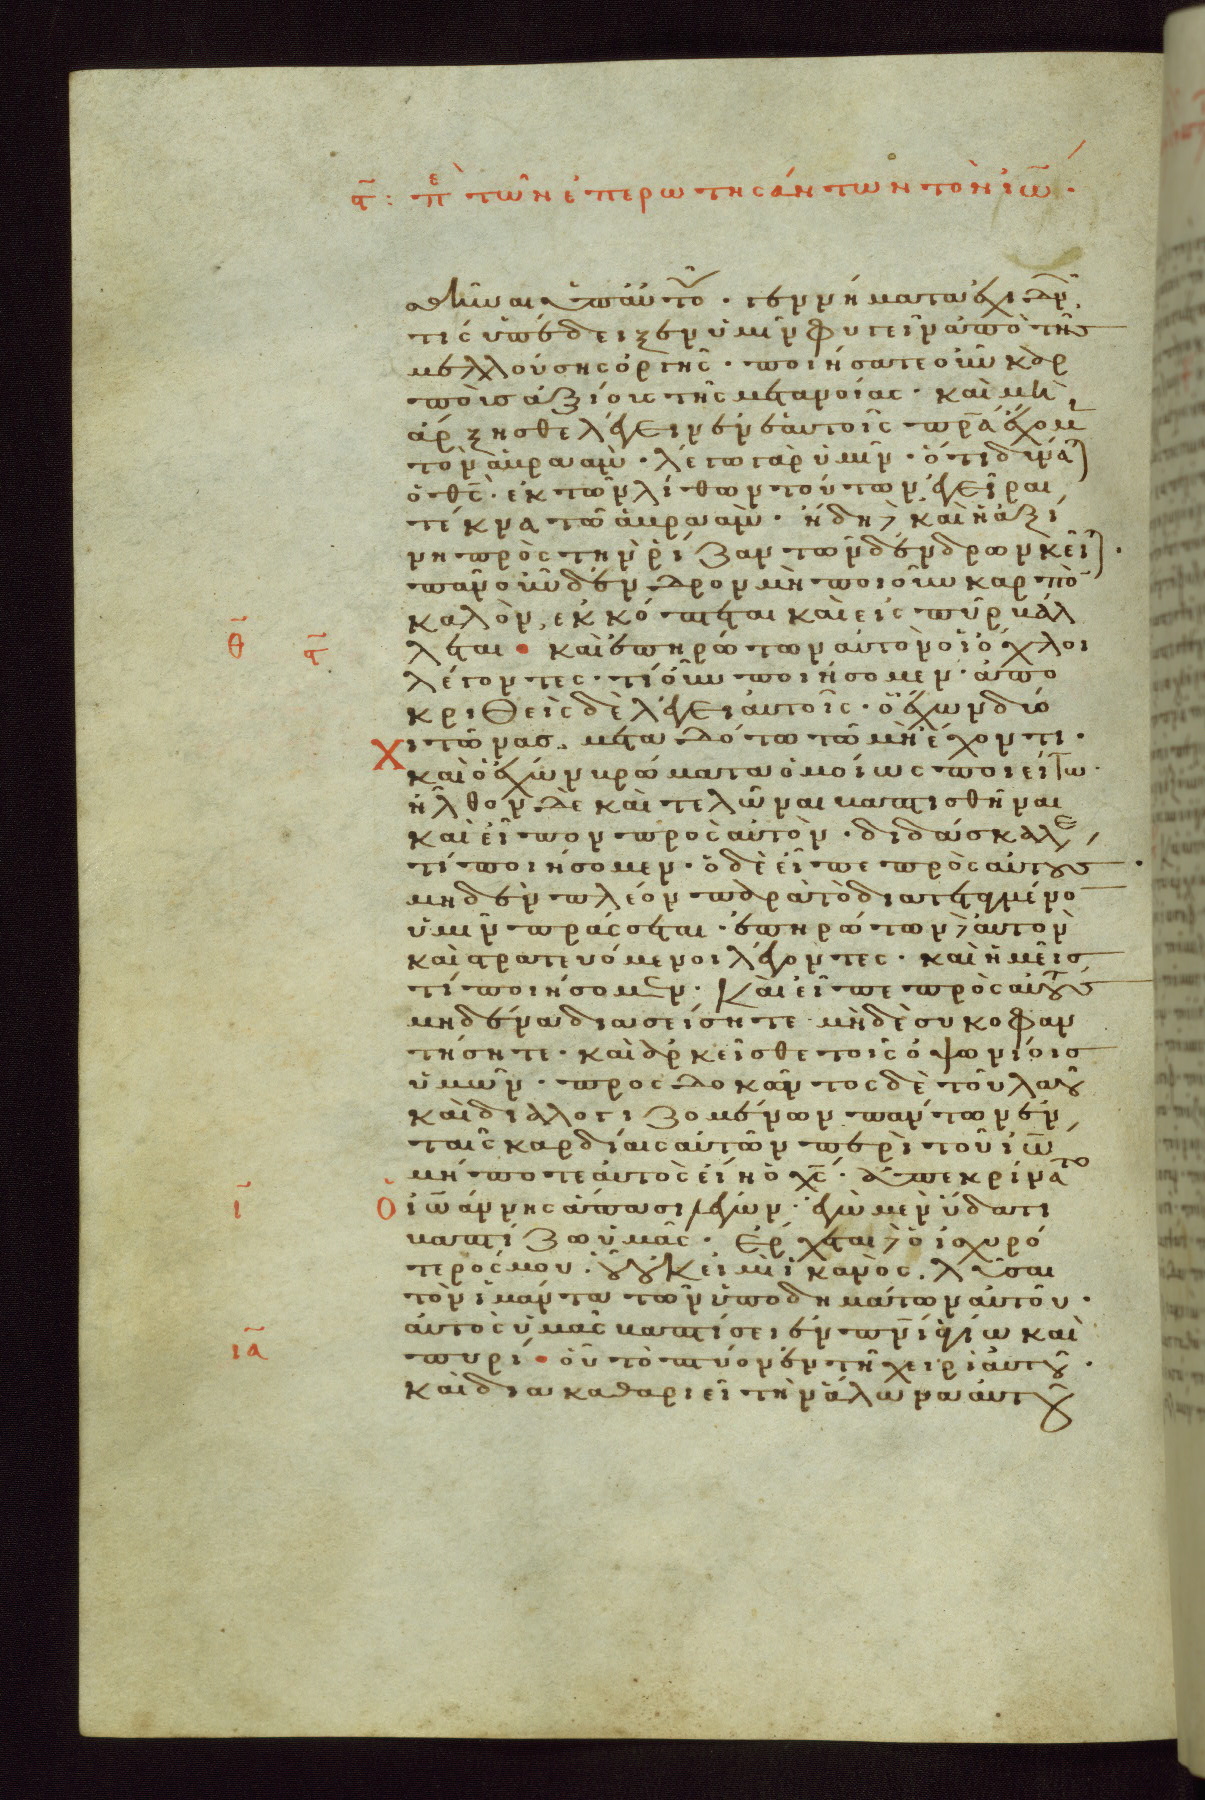 ϛ̄: πε̑ τῶν ἐπερωτησάντων τὸν ἰω̄.
θῆναι ὑπ' αὐτοῦ. γεννήματα ἐχιδνῶν
τίς ὑπέδειξεν ὑμῖν φυγεῖν ἀπὸ τῆς
μελλούσης ὀργῆς. ποιήσατε οὖν καρ
ποὺς ἀξίους τῆς μετανοίας. καὶ μὴ
ἄρξησθε λέγειν ἐν ἑαυτοῖς πρ̄α ἔχομεν
τὸν ἀβραάμ. λέγω γὰρ ὑμῖν. ὅτι δύναται
ὁ θς̄. ἐκ τῶν λίθων τούτων ἐγεῖραι
τέκνα τῶ ἀβραάμ. ἤδη δὲ καὶ ἡ ἀξί
νη πρὸς τὴν ῥίζαν τῶν δένδρων κεῖται.
πᾶν οὖν δένδρον μὴ ποιοῦν καρπὸν
καλὸν, ἐκκόπτεται καὶ εἰς πῦρ βάλ
θ̄ ϛ̄ λεται. καὶ ἐπηρώτων αὐτὸν οἱ ὄχλοι
λέγοντες. τί οὖν ποιήσομεν. ἀπο
κριθεὶς δὲ λέγει αὐτοῖς. ὁ ἔχων δύο
χιτῶνας. μεταδότω τῶ μὴ ἔχοντι.
καὶ ὁ ἔχων βρώματα ὁμοίως ποιείτω.
ἦλθον δὲ καὶ τελῶναι βαπτισθῆναι
καὶ εἶπον πρὸς αὐτὸν. διδάσκαλε,
τί ποιήσομεν. ὁ δὲ εἶπε πρὸς αὐτούς.
μηδὲν πλέον παρὰ τὸ διατεταγμένον
ὑμῖν πράσσεται. ἐπηρώτων δὲ αὐτὸν
καὶ στρατευόμενοι λέγοντες. καὶ ἡμεῖς
τί ποιήσομεν. Καὶ εἶπε πρὸς αὐτούς
μηδένα διασείσητε μηδὲ συκοφαν
τήσητε. καὶ ἀρκεῖσθε τοῖς ὀψωνίοις
ὑμῶν. προσδοκῶντος δὲ τοῦ λαοῦ
καὶ διαλογιζομένων πάντων ἐν
ταῖς καρδίαις αὐτῶν περὶ τοῦ ἰω̄
μήποτε αὐτὸς εἴη ὁ χς̄. ἀπεκρίνατο
ῑ ὁ ἰω̄άννης ἅπασι λέγων. ἐγὼ μὲν ὕδατι
βαπτίζω ὑμᾶς. Ἔρχεται δὲ ὁ ἰσχυρό
τερός μου. οὗ οὐκ εἰμὶ ἱκανὸς. λῦσαι
τὸν ἱμάντα τῶν ὑποδημάτων αὐτοῦ.
αὐτὸς ὑμᾶς βαπτίσει ἐν πν̄ι ἁγίω καὶ
ῑᾱ πυρί. οὗ τὸ πτύον ἐν τῆ χειρὶ αὐτοῦ.
καὶ διακαθαριεῖ τὴν ἅλωνα αὐτοῦ